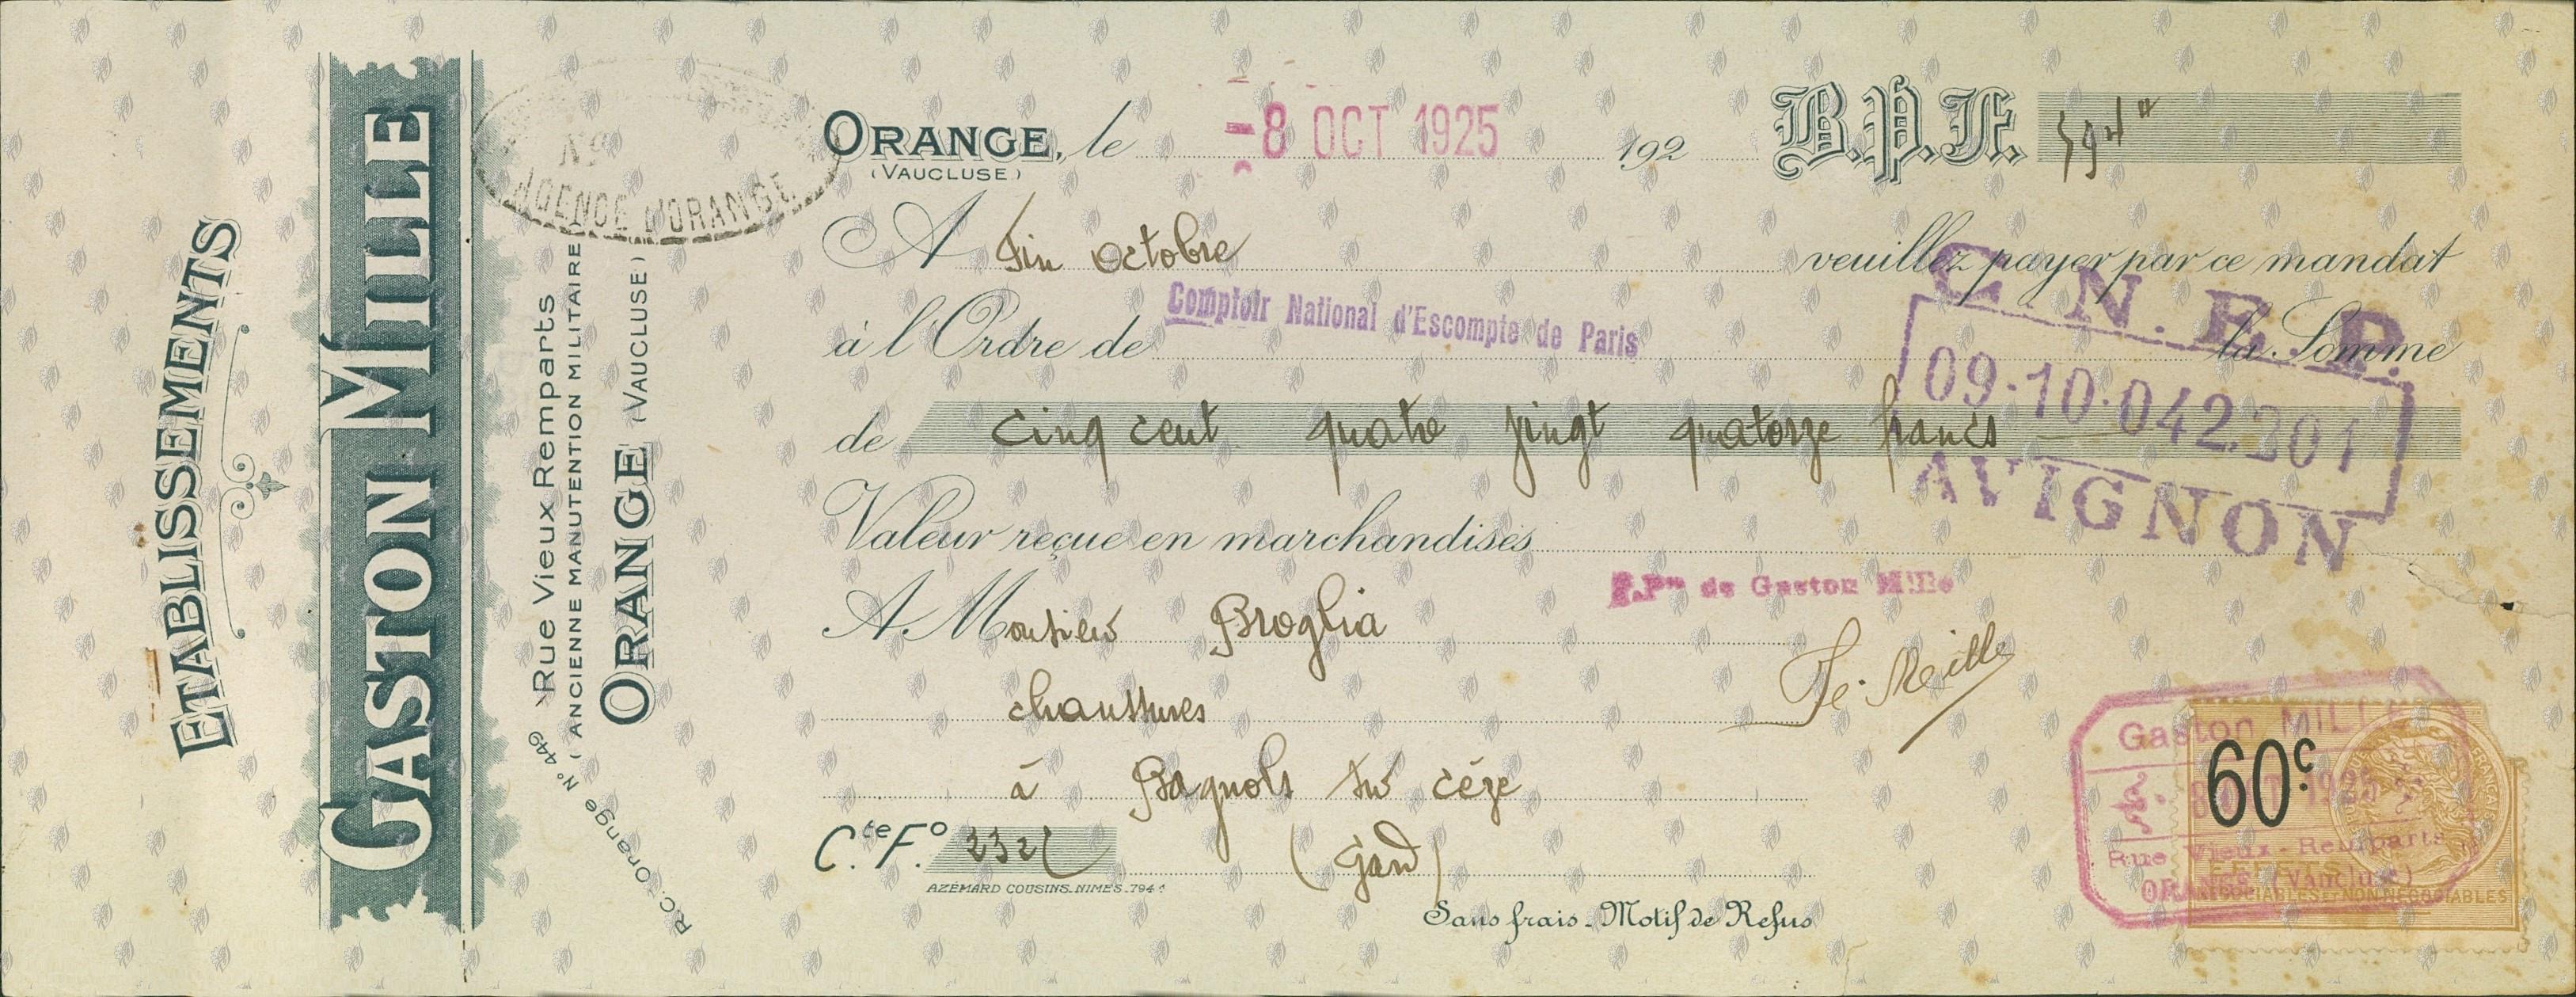 ETABLISSEMENTS
GASTON MILLE
Rue Vieux Remparts
( ANCIENNE MANUTENTION MILITAIRE )
ORANGE (VAUCLUSE)
R.C. Orange N° 449
AGENCE D'ORANGE
ORANGE, le -8 OCT 1925 192
(VAUCLUSE)
B.P.F. 594"
A fin octobre veuillez payer par ce mandat
à l'Ordre de Comptoir National d'Escompte de Paris la Somme
de cinq cent quatre vingt quatorze francs
C.N.E.P.
09.10.042.301
AVIGNON
Valeur reçue en marchandises
P.Pon de Gaston Mille
A Monsieur Broglia
chaussures
à Bagnols sur cèze
(Gard)
Cte F.° 232
AZEMARD COUSINS_NIMES_794
Sans frais_Motif de Refus
Gaston MILLE
60c
Rue Vieux-Remparts
ORANGE (Vaucluse)
NÉGOCIABLES ET NON NÉGOCIABLES